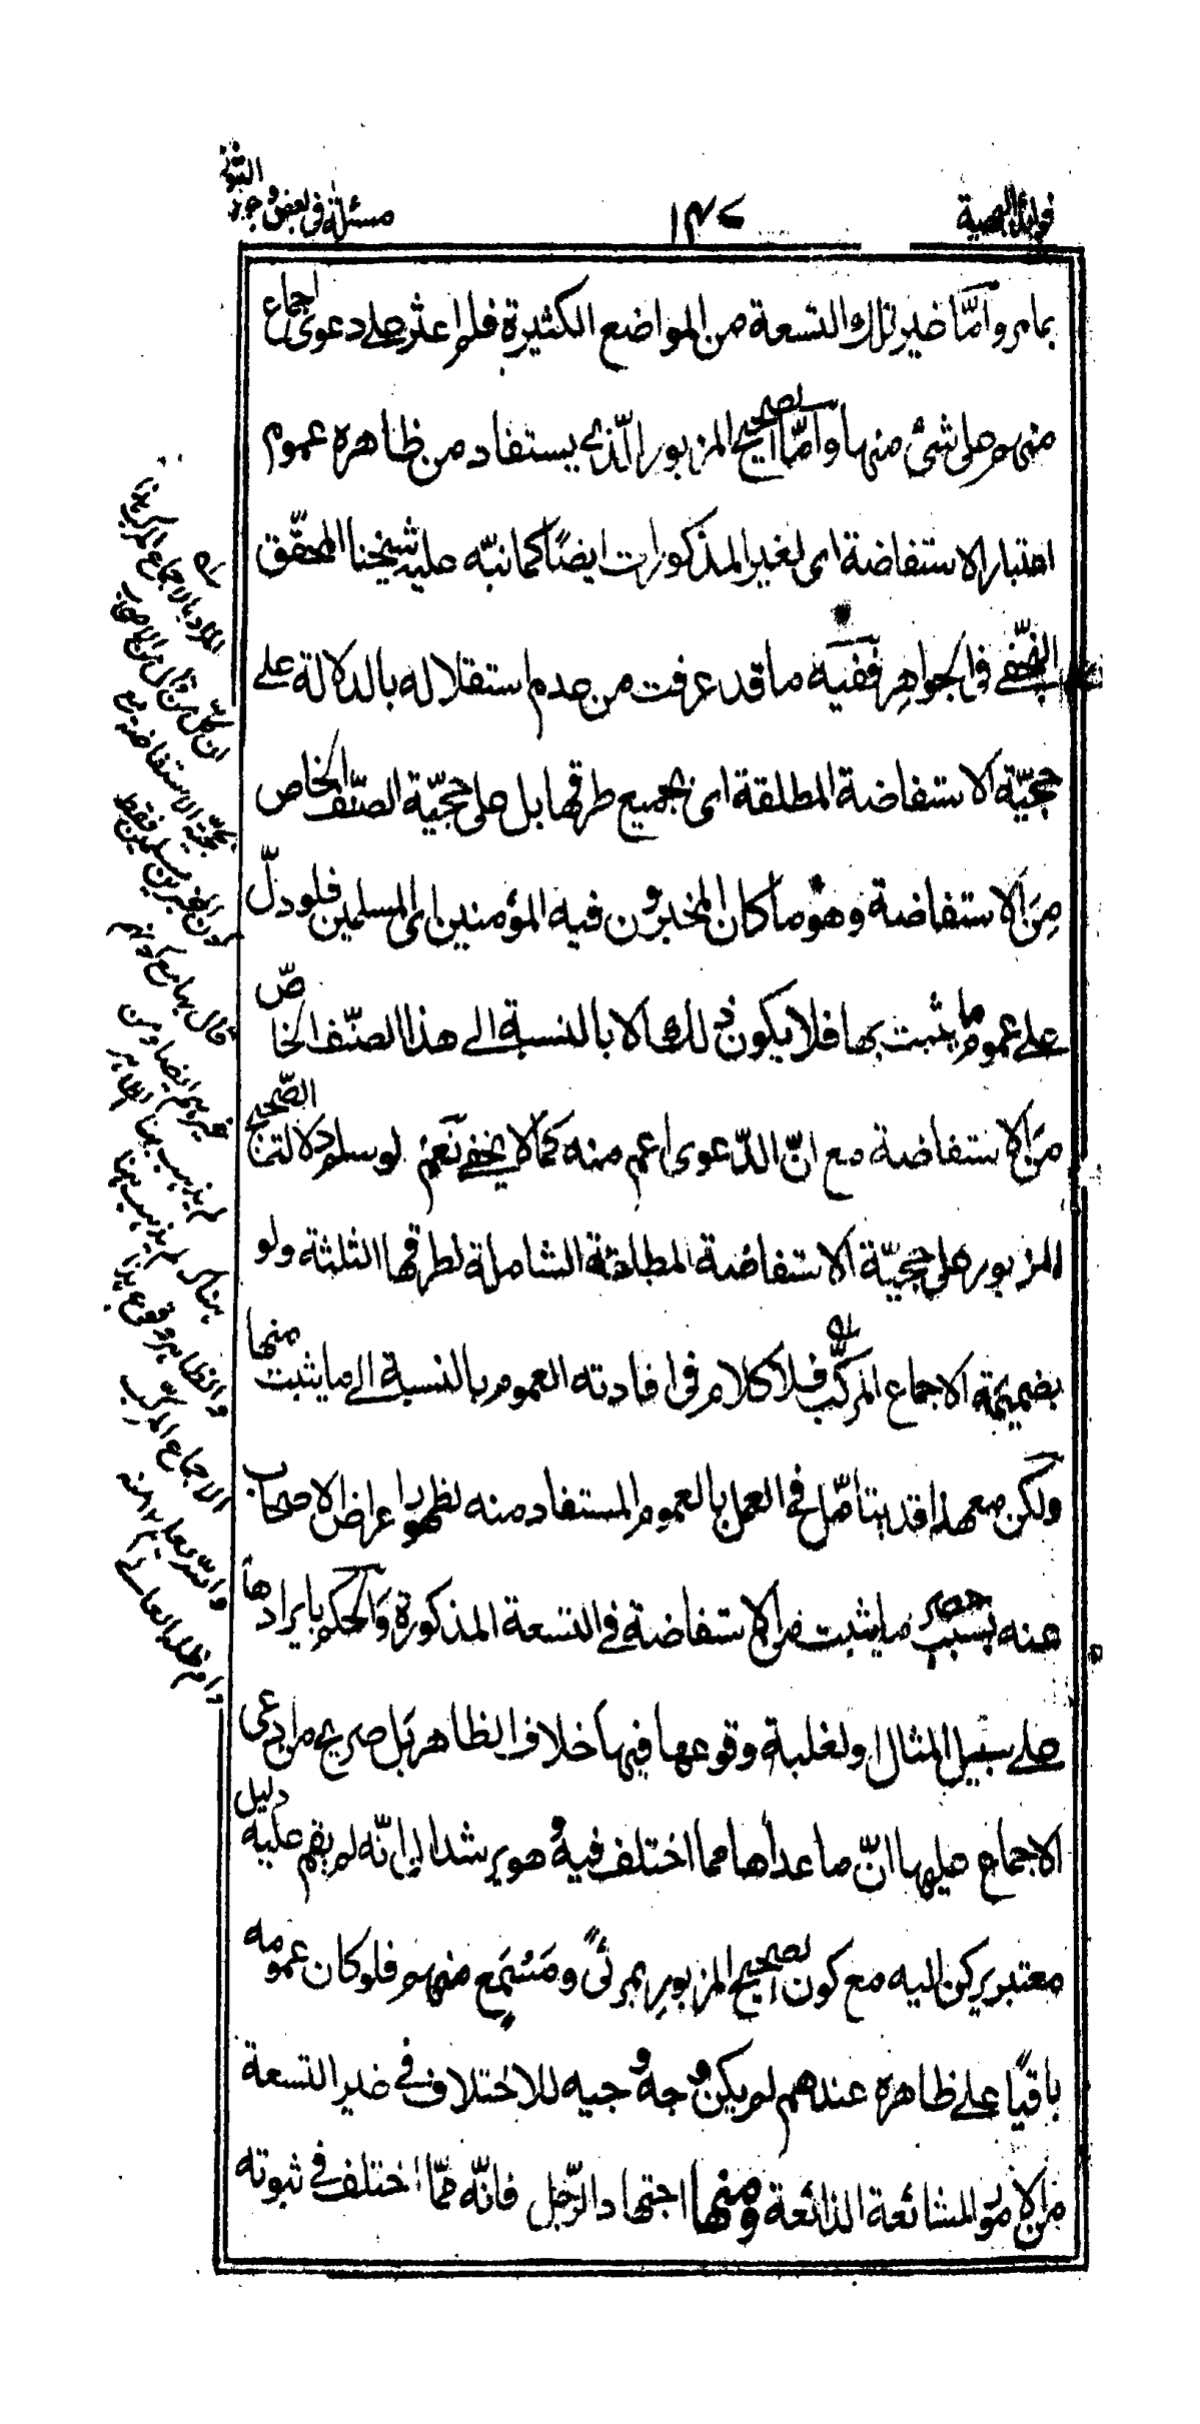 فوائد البهية
١٤٧
مسئلة فى بعض وجوه الثبوت
بما مر وأمّا غير تلك التسعة من المواضع الكثيرة فلم اعثر على دعوى اجماع
منهم على شئ منها وأمّا الصحيح المزبور الّذى يستفاد من ظاهره عموم
اعتبار الاستفاضة اى لغير المذكورات ايضًا كما نبّه عليه شيخنا المحقّق
النجفى فى الجواهر ففيه ما قد عرفت من عدم استقلاله بالدلالة على
حجيّة الاستفاضة المطلقة اى بجميع طرقها بل على حجيّة الصّنف الخاص
مِنَ الاستفاضة وهو ما كان المخبرون فيه المؤمنين اى المسلمين فلو دلّ
على عموم ما يثبت بها فلا يكون ذلك الا بالنسبة الى هذا الصنّف الخاصّ
مِنَ الاستفاضة مع انّ الدّعوى اعم منه كما لا يخفى نَعَمْ لو سلم دلالة الصّحيح
المزبور على حجيّة الاستفاضة المطلقة الشاملة لطرقها الثلثة ولو
بضميمة الاجماع المركّب فلا كلام فى افادته العموم بالنسبة الى ما يثبت منها
ولكن مع هذا قد يتأمّل فى العمل بالعموم المستفاد منه لظهور اعراض الاصحاب
عنه بسبب حصر ما يثبت من الاستفاضة فى التسعة المذكورة وَالحكم بايرادها
على سبيل المثال او لغلبة وقوعها فيها خلاف الظاهر بَل صريح من ادعى
الاجماع عليها انّ ما عداها مما اختلف فيه وهو يرشد الى انّه لم يقم عليه دليل
معتبر يركن اليه مع كون الصحيح المزبور بمرئً ومَسْمَع منهم فلو كان عمومه
باقيًا على ظاهره عندهم لم يكن وجه وجيه للاختلاف فى غير التسعة
من الامور الشائعة الذائعة ومنها اجتهاد الرّجل فانّه ممّا اختلف فى ثبوته
المراد بالاجماع المركب هنا
ان كل من قال من الاصحاب
بحجيّة الاستفاضة مع
كون المخبرين مسلمين فقط
قال بها مع كونهم
غيرهم ايضا ومن
لم يذهب بها
هناك لم يذهب بها هنا
والظاهر وقوع هذا
الاجماع المركب
والله يعلم منه
دام ظله العالى